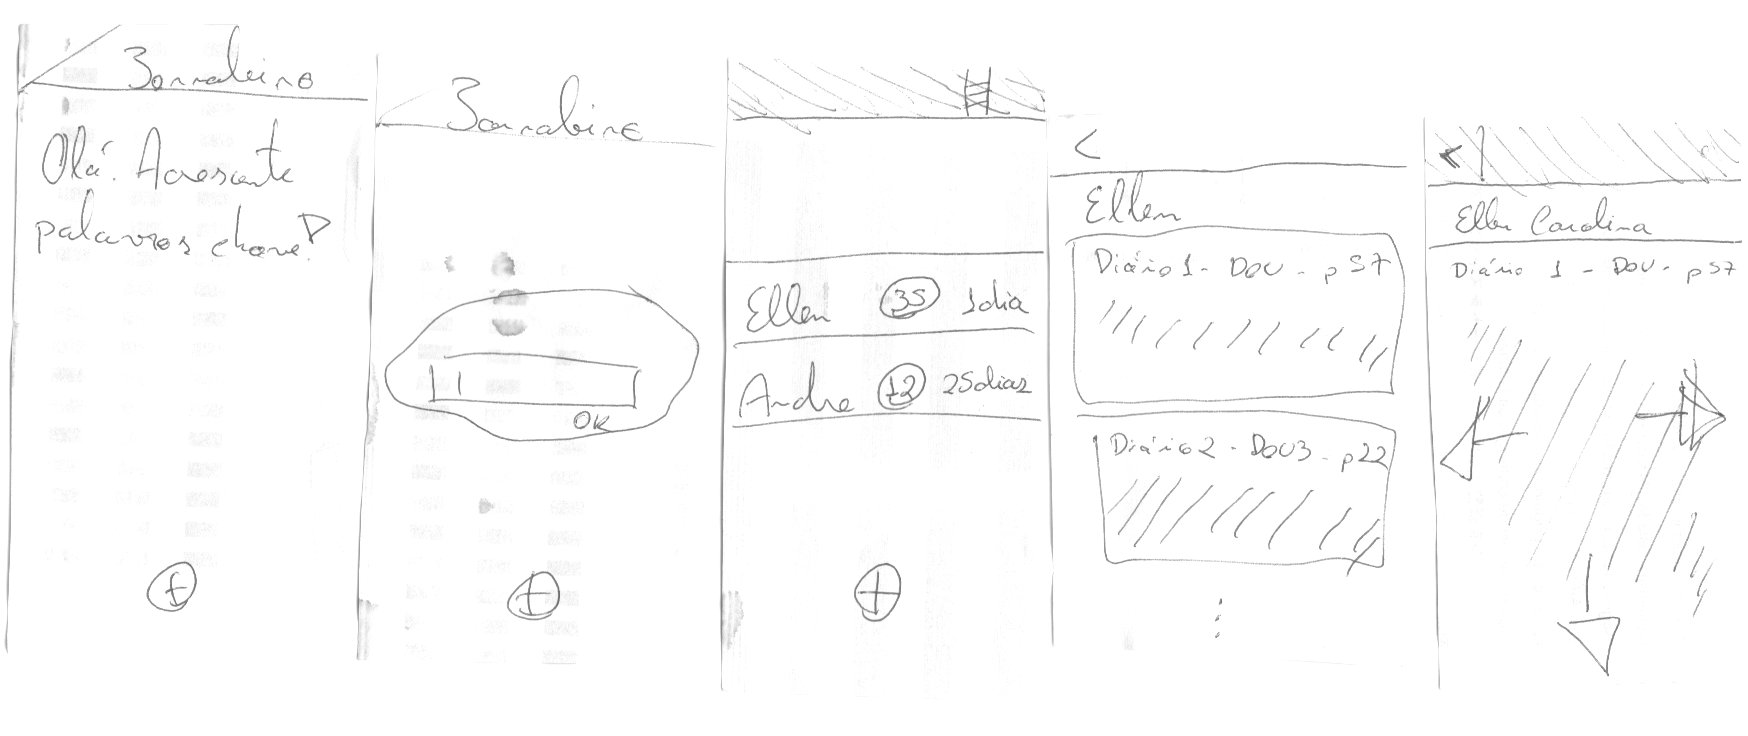 Olá! Acrescente
palavras chave!
OK
Ellen 35 1dia
Andre 12 25dias
<
Ellen
Diário 1 - DOU - p57
Diário 2 - DOU3 - p22
<
Ellen Carolina
Diário 1 - DOU - p57